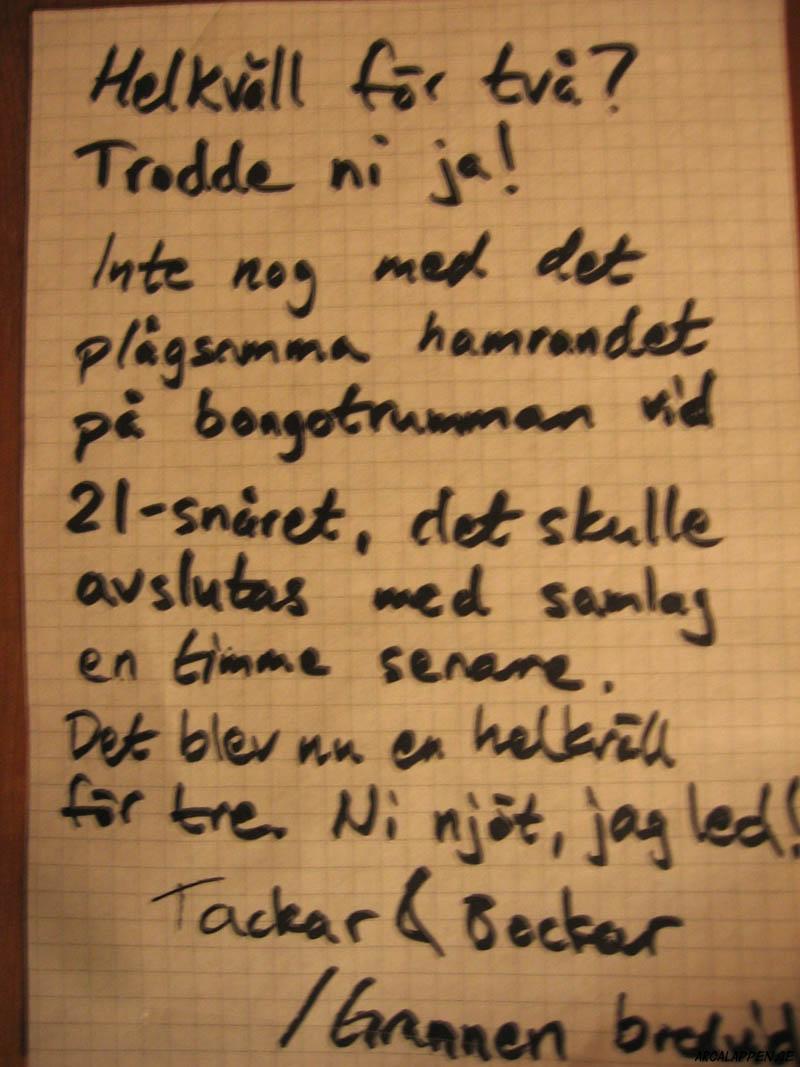 Helkväll för två?
Trodde ni ja!
Inte nog med det
plågsamma hamrandet
på bongotrumman vid
21-snåret, det skulle
avslutas med samlag
en timme senare.
Det blev nu en helkväll
för tre. Ni njöt, jag led!
Tackar & Bockar
/Grannen bredvid
ARGALAPPEN.SE